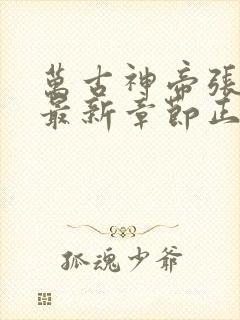 萬古神帝張
最新章節正
孤魂少爺